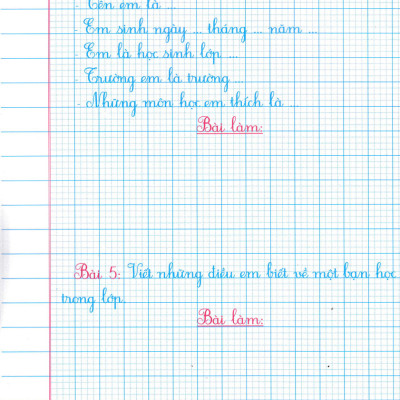 - Tên em là ...
- Em sinh ngày ... tháng ... năm ...
- Em là học sinh lớp ...
- Trường em là trường ...
- Những môn học em thích là ...
Bài làm:
Bài 5: Viết những điều em biết về một bạn học
trong lớp.
Bài làm: